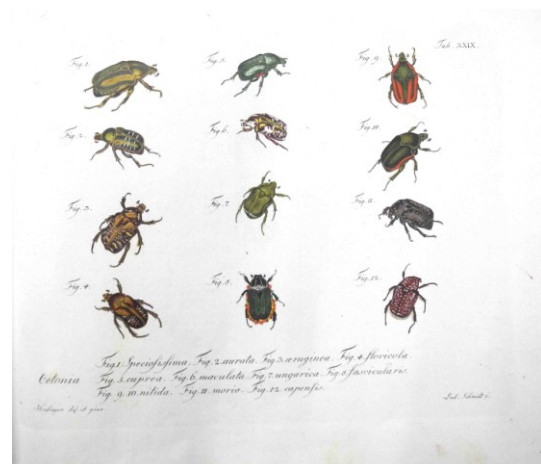 Tab. XXIX.
Fig. 1.
Fig. 5.
Fig. 9.
Fig. 2.
Fig. 6.
Fig. 10.
Fig. 3.
Fig. 7.
Fig. 11.
Fig. 4.
Fig. 8.
Fig. 12.
Cetonia
Fig. 1. Speciosissima. Fig. 2. aurata. Fig. 3. æruginea. Fig. 4. floricola.
Fig. 5. cuprea. Fig. 6. maculata. Fig. 7. ungarica. Fig. 8. fascicularis.
Fig. 9. 10. nitida. Fig. 11. morio. Fig. 12. capensis.